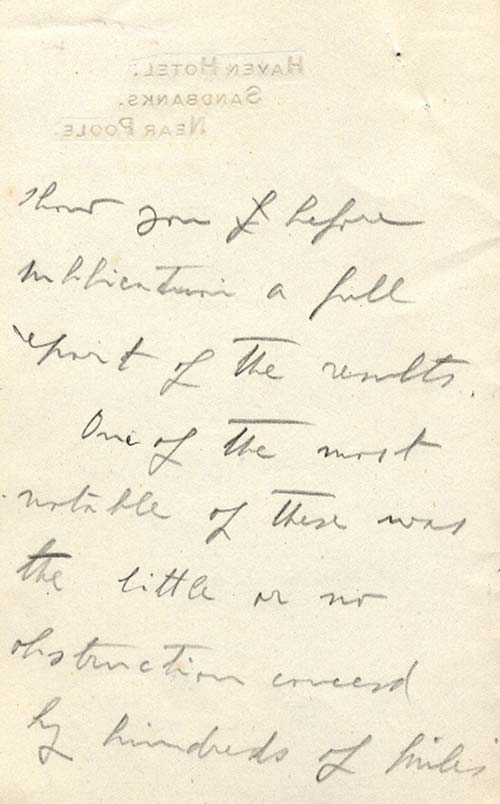 HAVEN HOTEL.
SANDBANKS.
NEAR POOLE.
show you before
publication a full
report of the results.
One of the most
notable of these was
the little or no
obstruction caused
by hundreds of miles